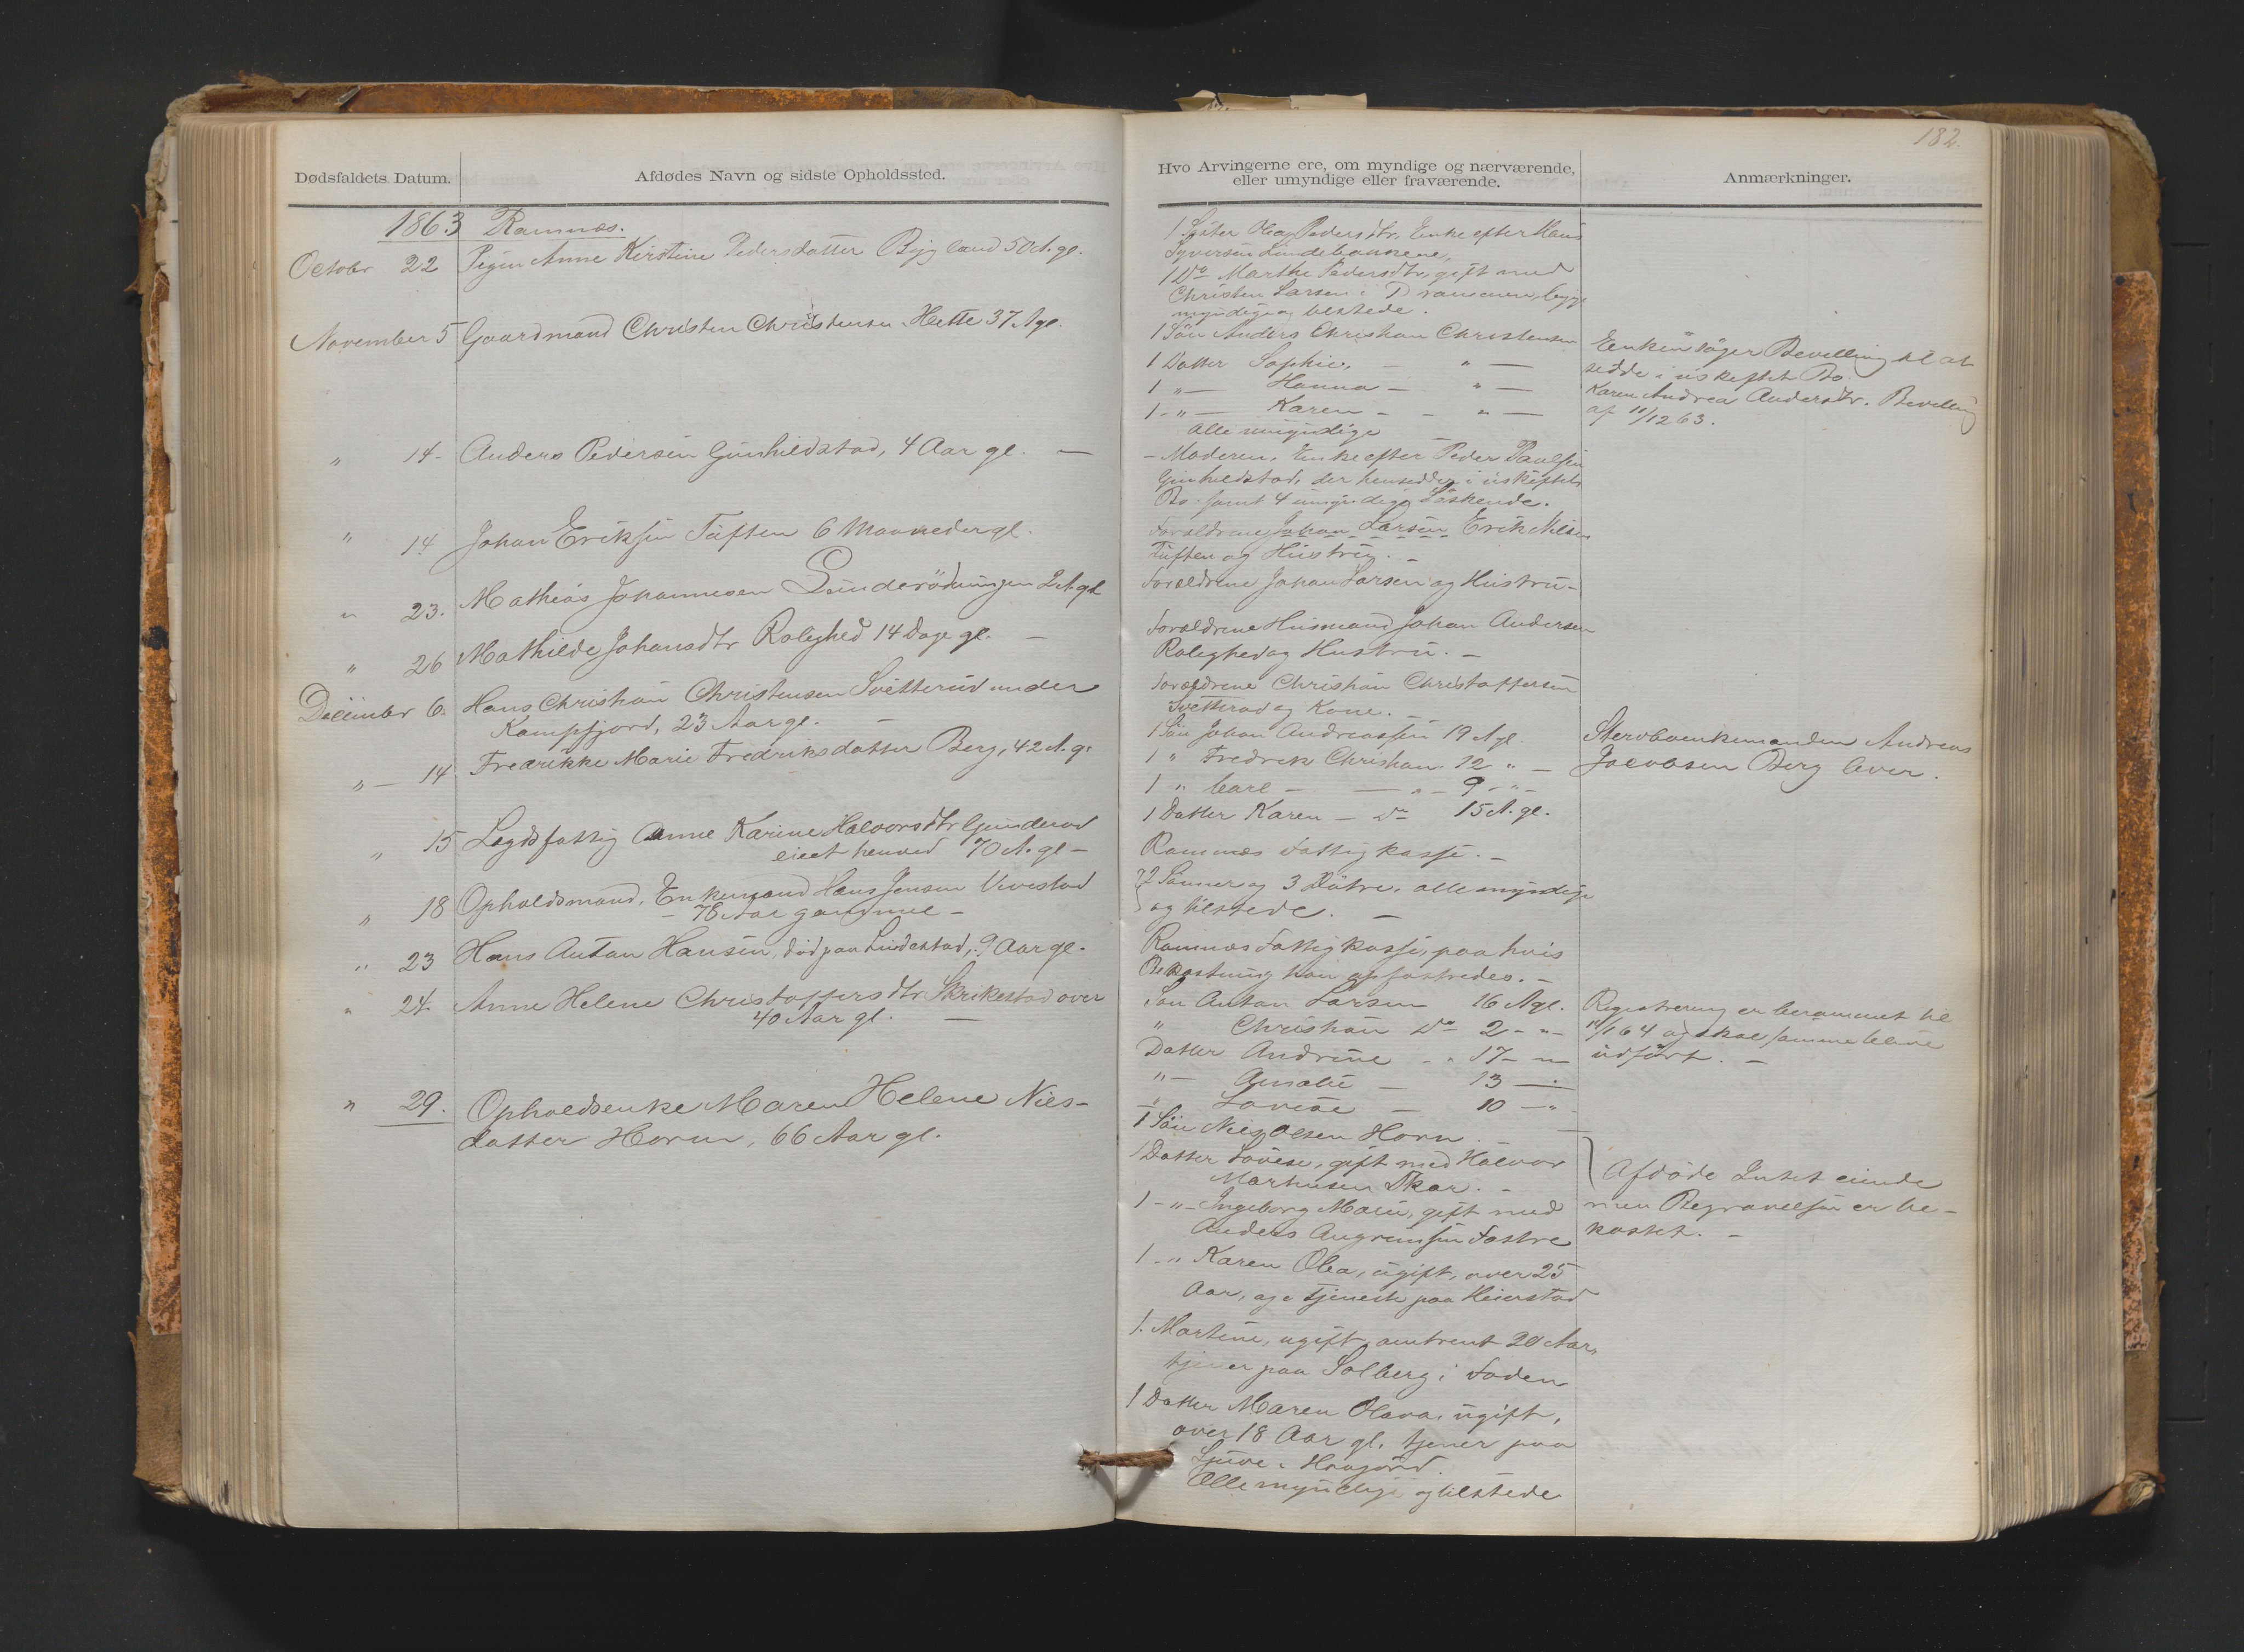 Dødsfaldets Datum.
Afdødes Navn og sidste Opholdssted.
1863 Ramnæs.
October 22 Pigen Anne Kirstine Pedersdatter Bygland 50 A. gl.
November 5 Gaardmand Christen Christensen Hette 37 A gl.
" 14- Anders Pedersen Gunhildstad, 4 Aar gl. —
" 14 Johan Eriksen Tuften 6 Maaneder gl.
" 23. Mathias Johannesen Sunderödningen 2 A. gl
" 26 Mathilde Johansdtr Rolighed 14 Dage gl. —
December 6. Hans Christian Christensen Svetterud under
Kampfjord, 23 Aar gl. —
" — 14 Fredrikke Marie Fredriksdatter Berg, 42 A. gl
" 15 Lægdsfattig Anne Karine Halvorsdtr Gunderud
eiret henved 70 A. gl —
" 18 Opholdsmand, Enkemand Hans Jensen Vivestad
— 78 Aar gammel —
" 23 Hans Anton Hansen, död paa Lindestad, 9 Aar gl.
" 24. Anne Helene Christoffersdtr Skrikestad over
40 Aar gl. —
" 29. Opholdsenke Maren Helene Niels-
datter Horn, 66 Aar gl.
182.
Hvo Arvingerne ere, om myndige og nærværende,
eller umyndige eller fraværende.
Anmærkninger.
1. Söster Olea Pedersdtr. Enke efter Hans
Syversen Lindebakkene,
1 Do Marthe Pedersdtr, gift med
Christen Larsen i Drammen, begge
myndige og tilstede.
1 Sön Anders Christian Christensen
1 Datter Sophie, — " —
1 " — Hanna — " —
1 - " — Karen - - " —
Alle umyndige
Enken söger Bevilling til at
sidde i uskiftet Bo.
Karen Andrea Andersdtr. Bevilling
af 11/12 63.
- Moderen, Enke efter Peder Paulsen
Gunhildstad, der hensidder i uskiftet
Bo. samt 4 umyndige Söskende.
Forældrene Johan Larsen Erik Nilsen
Tuften og Hustru. —
Forældrene Johan Larsen og Hustru —
Forældrene Husmand Johan Andersen
Rolighed og Hustru. —
Forældrene Christian Christoffersen
Svetterud og Kone. —
1 Sön Johan Andreassen 19 A gl.
1 " Fredrik Christian 12 " —
1 " Carl — — " — 9 - " -
1 Datter Karen — Do 15 A. gl.
Stervboenkemanden Andreas
Jacobsen Berg lever.
Ramnæs Fattigkasse. —
2 Sönner og 3 Dötre, alle myndige
og tilstede. —
Ramnæs Fattigkasse, paa hvis
Bekostning han opfostredes. —
Sön Anton Larsen 16 A gl.
" Christian Do 2 - " —
Datter Andrine - " 17 — " —
" — Amalie — 13 —
" Lovise — 10 — " -
Registrering er berammet til
14/1 64 og skal samme blive
udfört. —
1 Sön Niels Olsen Horn. —
1 Datter Lovise, gift med Halvor
Marthinsen Skar. —
1 - " - Ingeborg Marie, gift med
Anders Augrimsen Fostre
1 - " Karen Olea, ugift, over 25
Aar, og i Tjeneste paa Heierstad
1. Martine, ugift, omtrent 20 Aar,
tjener paa Solberg i Foden
1 Datter Maren Olava, ugift,
over 18 Aar gl. tjener paa
Ljuve i Haugord.
Alle myndige og tilstede
Afdöde Intet eiende
men Begravelsen er be-
kostet. —